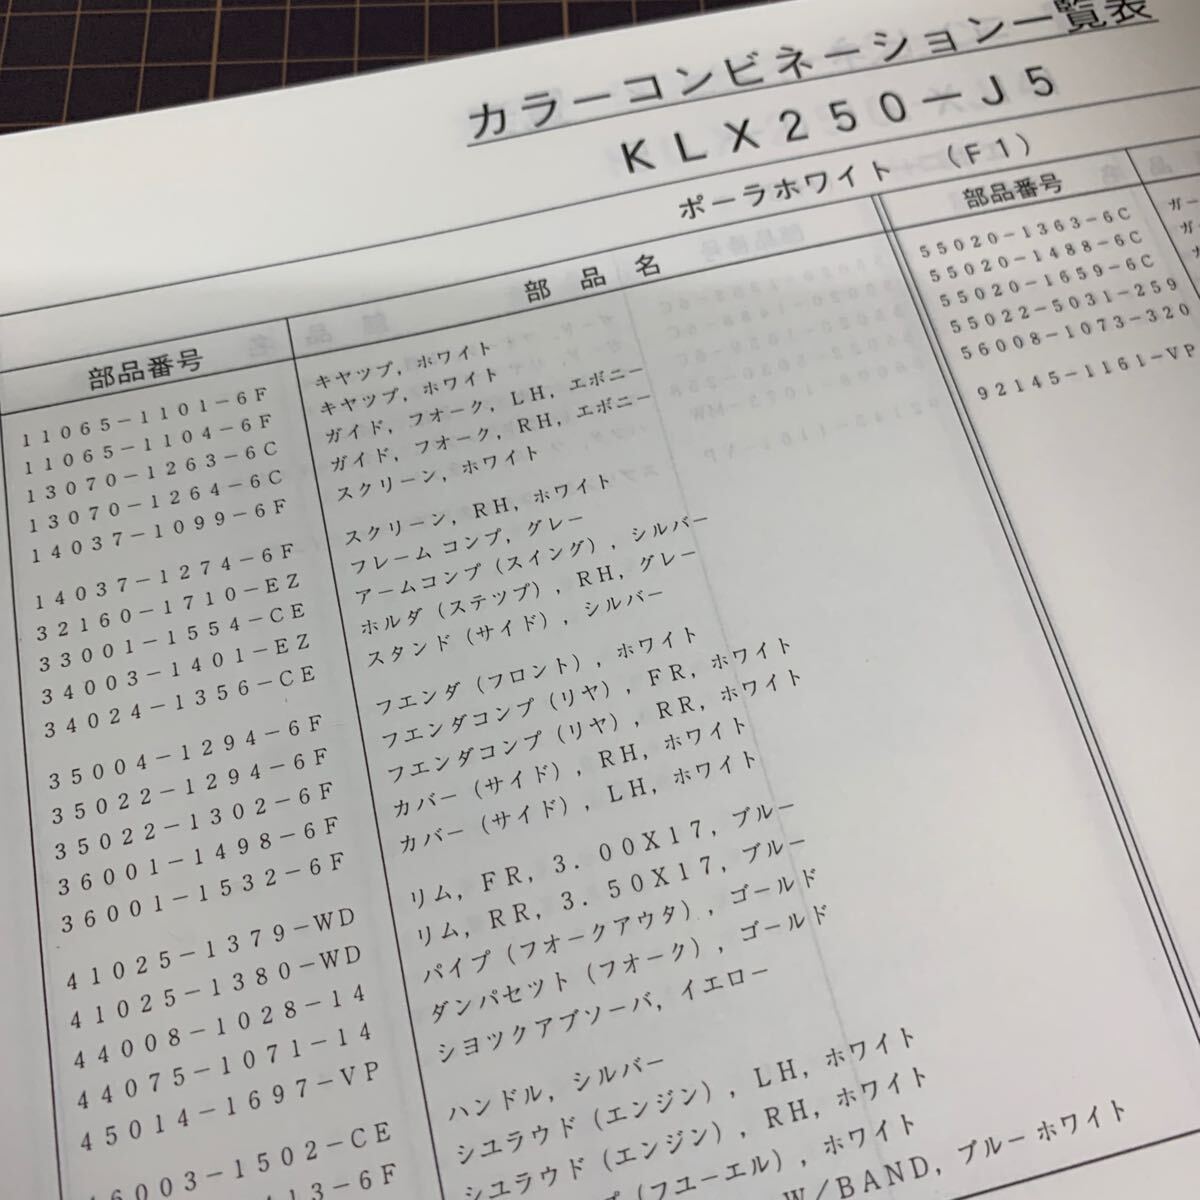 カラーコンビネーション一覧表
KLX250-J5
ポーラホワイト (F1)
部品番号 部品名
11065-1101-6F キヤツプ,ホワイト
11065-1104-6F キヤツプ,ホワイト
13070-1263-6C ガイド,フオーク,LH,エボニー
13070-1264-6C ガイド,フオーク,RH,エボニー
14037-1099-6F スクリーン,ホワイト
14037-1274-6F スクリーン,RH,ホワイト
32160-1710-EZ フレーム コンプ,グレー
33001-1554-CE アームコンプ(スイング),シルバー
34003-1401-EZ ホルダ(ステツプ),RH,グレー
34024-1356-CE スタンド(サイド),シルバー
35004-1294-6F フエンダ(フロント),ホワイト
35022-1294-6F フエンダコンプ(リヤ),FR,ホワイト
35022-1302-6F フエンダコンプ(リヤ),RR,ホワイト
36001-1498-6F カバー(サイド),RH,ホワイト
36001-1532-6F カバー(サイド),LH,ホワイト
41025-1379-WD リム,FR,3.00X17,ブルー
41025-1380-WD リム,RR,3.50X17,ブルー
44008-1028-14 パイプ(フオークアウタ),ゴールド
44075-1071-14 ダンパセツト(フオーク),ゴールド
45014-1697-VP シヨツクアブソーバ,イエロー
6003-1502-CE ハンドル,シルバー
13-6F シユラウド(エンジン),LH,ホワイト
シユラウド(エンジン),RH,ホワイト
(フユーエル),ホワイト
W/BAND,ブルーホワイト
部品番号
55020-1363-6C ガー
55020-1488-6C ガ
55020-1659-6C
55022-5031-259
56008-1073-320
92145-1161-VP